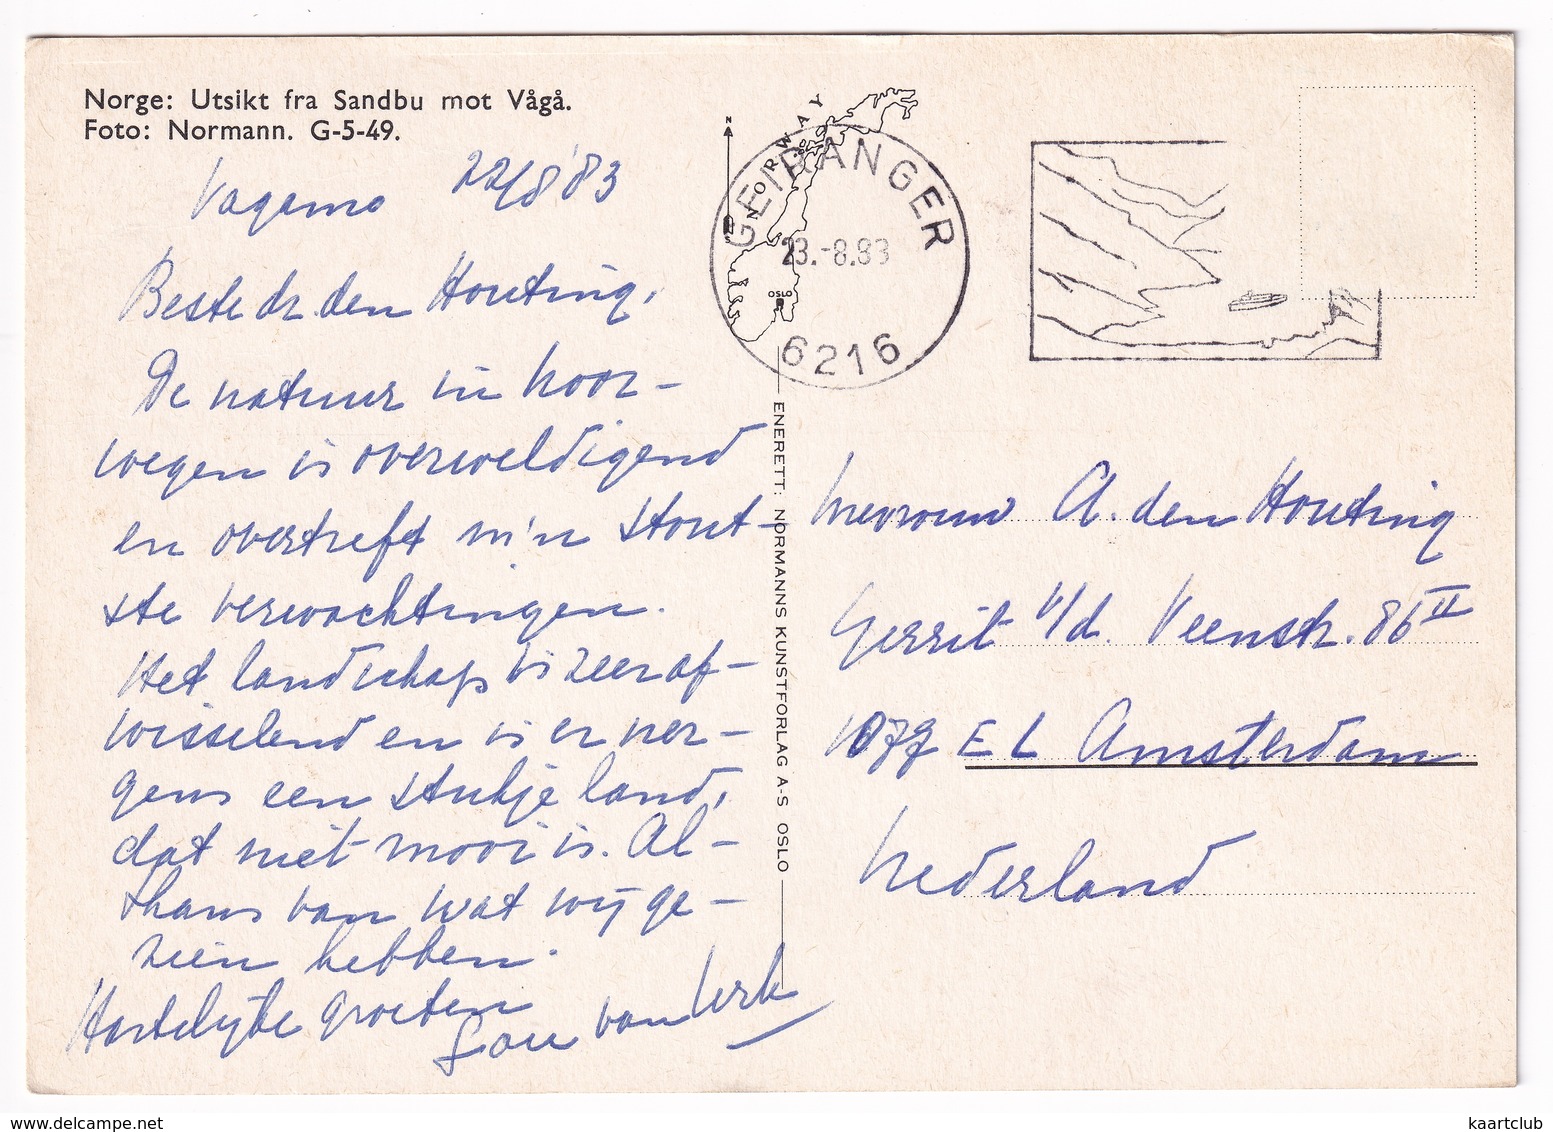 Norge: Utsikt fra Sandbu mot Vågå.
Foto: Normann. G-5-49.
Vagamo 22/8 '83
Beste dr. den Houting,
De natuur in Noor-
wegen is overweldigend
en overtreft m'n stout-
ste verwachtingen.
Het landschap is zeer af-
wisselend en is er ner-
gens een stukje land,
dat niet mooi is. Al-
thans van wat wij ge-
zien hebben.
Hartelijke groeten
Lou van
N
NORWAY
OSLO
GEIRANGER
23.-8.83
6216
ENERETT: NORMANNS KUNSTFORLAG A-S OSLO
Mevrouw A. den Houting
Gerrit v/d. Veenstr. 86 II
1077 EL Amsterdam
Nederland
www.delcampe.net
kaartclub